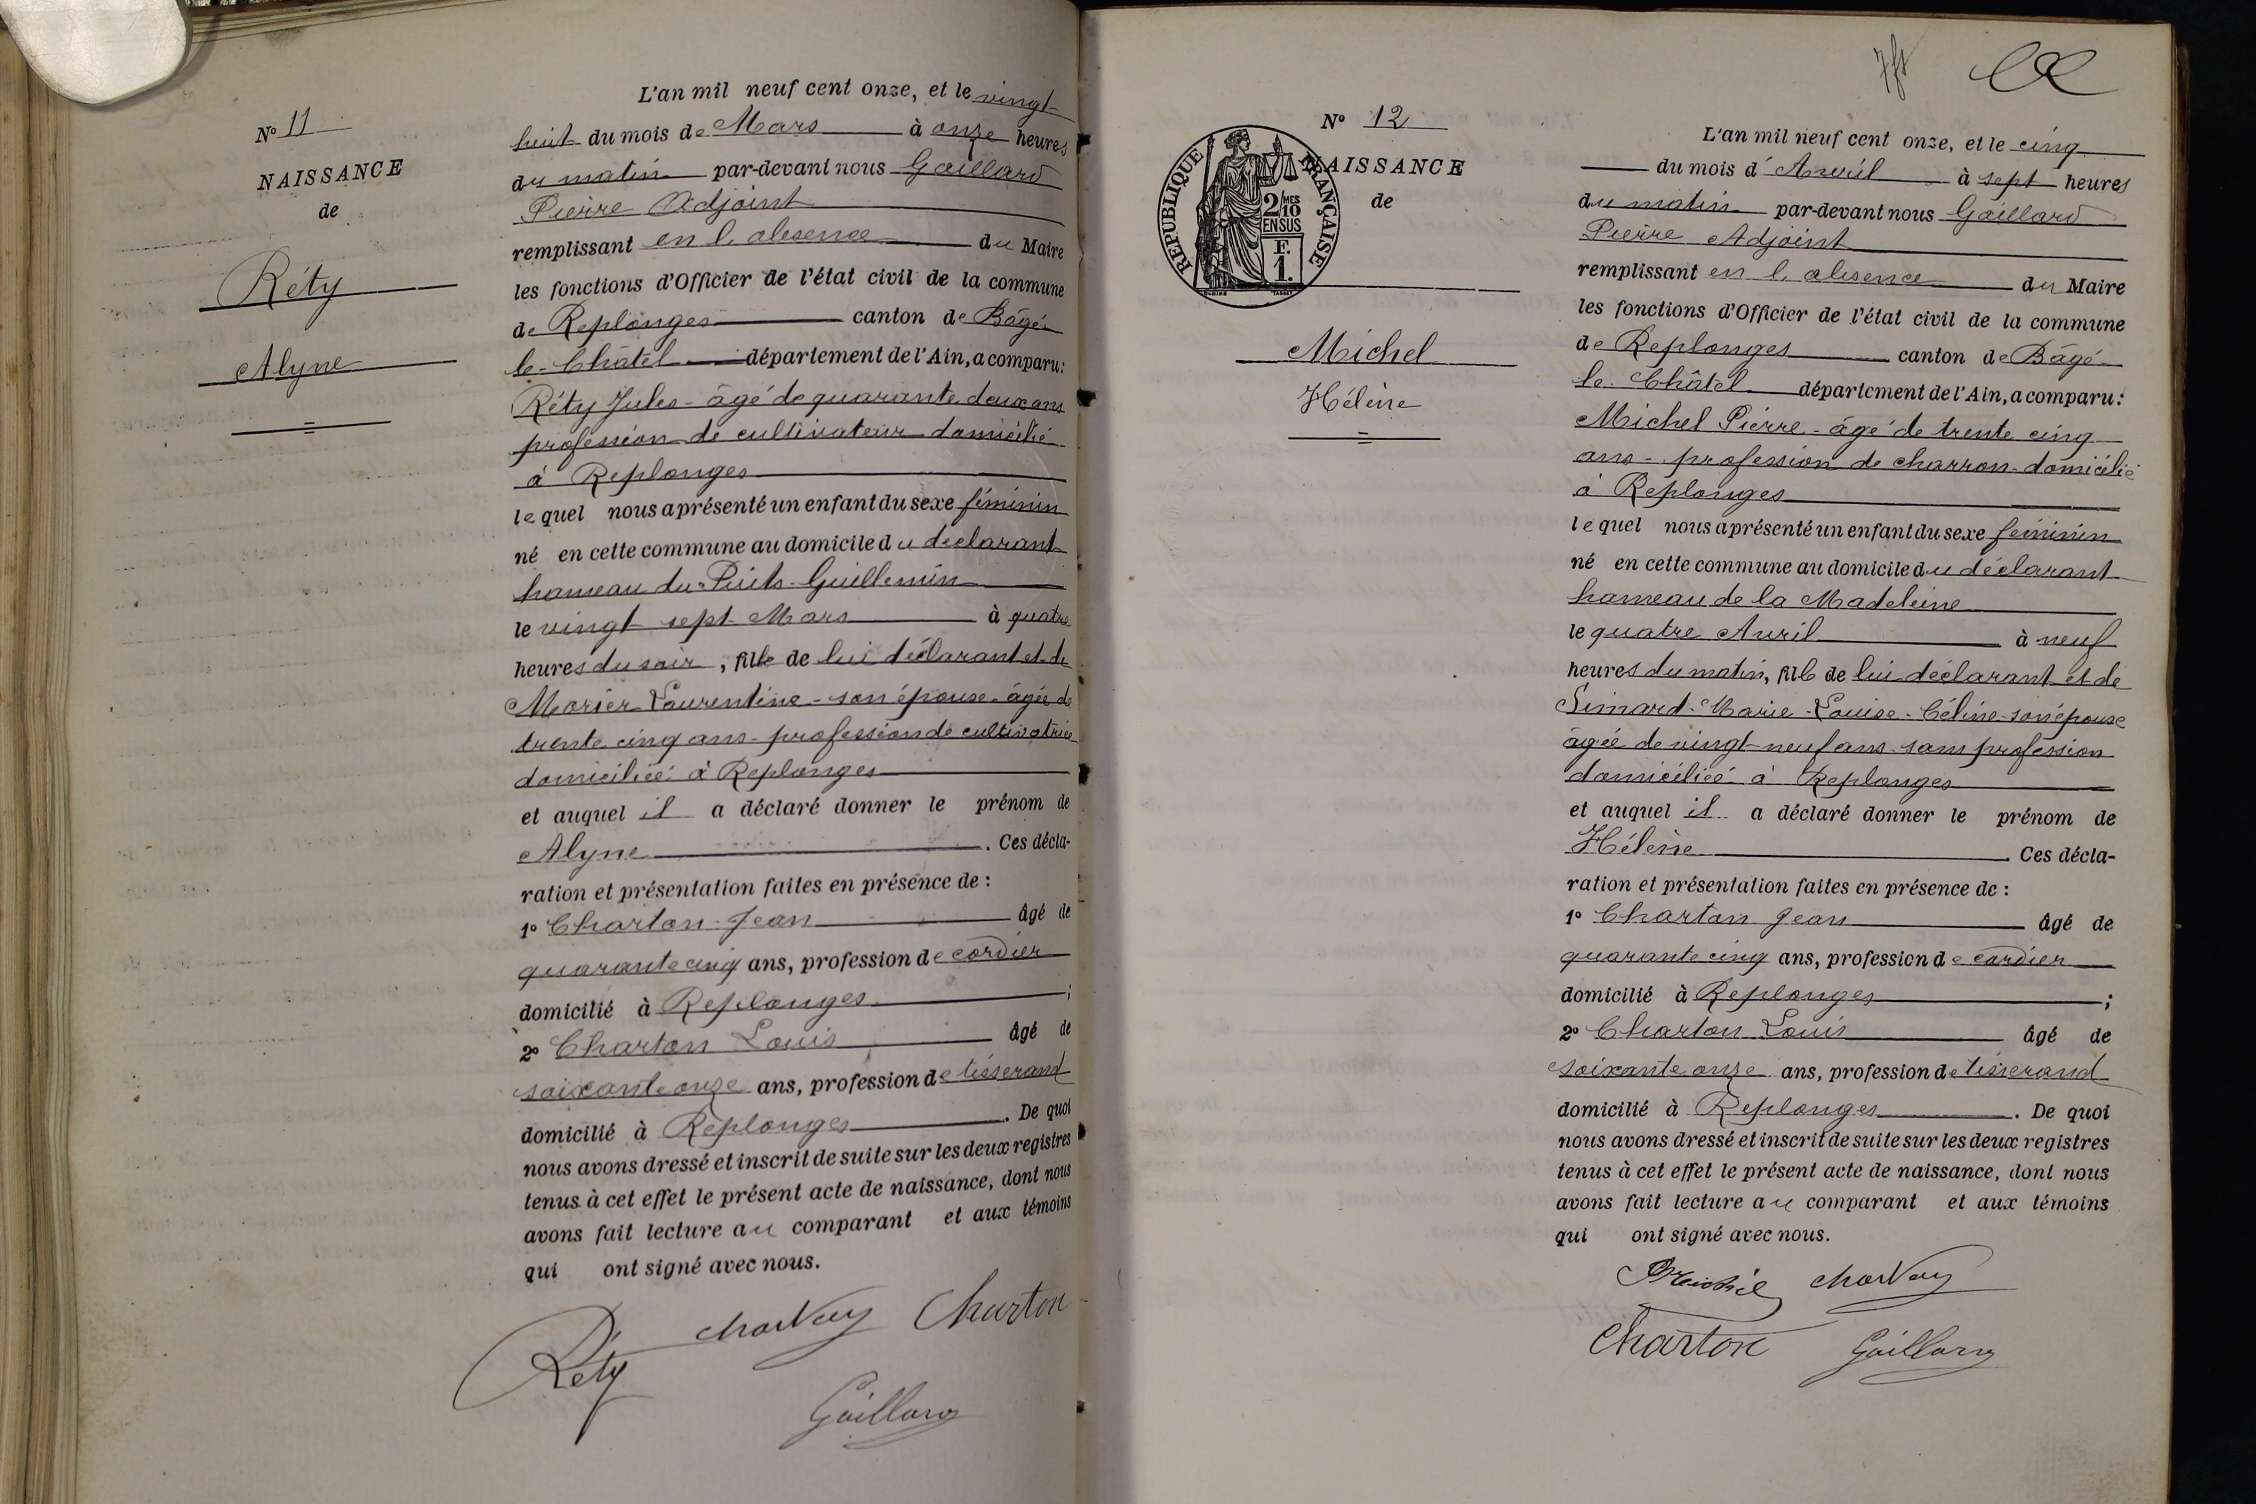 N° 11
NAISSANCE
de
Réty
Alyne
L'an mil neuf cent onze, et le vingt
huit du mois de Mars à onze heures
du matin par-devant nous Gaillard
Pierre Adjoint
remplissant en l'absence du Maire
les fonctions d'Officier de l'état civil de la commune
de Replonges canton de Bâgé
le Châtel département de l'Ain, a comparu:
Réty Jules - âgé de quarante deux ans
profession de cultivateur domicilié
à Replonges
lequel nous a présenté un enfant du sexe féminin
né en cette commune au domicile du déclarant
hameau du Puits-Guillemin
le vingt sept Mars à quatre
heures du soir, fille de lui déclarant et de
Morier Laurentine - son épouse - âgée de
trente cinq ans - profession de cultivatrice
domiciliée à Replonges
et auquel il a déclaré donner le prénom de
Alyne. Ces décla-
ration et présentation faites en présence de :
1° Charton Jean âgé de
quarante cinq ans, profession de cordier
domicilié à Replonges ;
2° Charton Louis âgé de
soixante onze ans, profession de tisserand
domicilié à Replonges. De quoi
nous avons dressé et inscrit de suite sur les deux registres
tenus à cet effet le présent acte de naissance, dont nous
avons fait lecture au comparant et aux témoins
qui ont signé avec nous.
Réty Charton
Gaillard
N° 12
NAISSANCE
de
RÉPUBLIQUE FRANÇAISE
2/10 MES
EN SUS
F.
1.
Michel
Hélène
L'an mil neuf cent onze, et le cinq
du mois d'Avril à sept heures
du matin par-devant nous Gaillard
Pierre Adjoint
remplissant en l'absence du Maire
les fonctions d'Officier de l'état civil de la commune
de Replonges canton de Bâgé
le Châtel département de l'Ain, a comparu :
Michel Pierre - âgé de trente cinq
ans - profession de charron - domicilié
à Replonges
lequel nous a présenté un enfant du sexe féminin
né en cette commune au domicile du déclarant
hameau de la Madeleine
le quatre Avril à neuf
heures du matin, fille de lui déclarant et de
Simard - Marie - Louise - Céline - son épouse
âgée de vingt-neuf ans - sans profession
domiciliée à Replonges
et auquel il a déclaré donner le prénom de
Hélène. Ces décla-
ration et présentation faites en présence de :
1° Charton Jean âgé de
quarante cinq ans, profession de cordier
domicilié à Replonges ;
2° Charton Louis âgé de
soixante onze ans, profession de tisserand
domicilié à Replonges. De quoi
nous avons dressé et inscrit de suite sur les deux registres
tenus à cet effet le présent acte de naissance, dont nous
avons fait lecture au comparant et aux témoins
qui ont signé avec nous.
Charton Gaillard